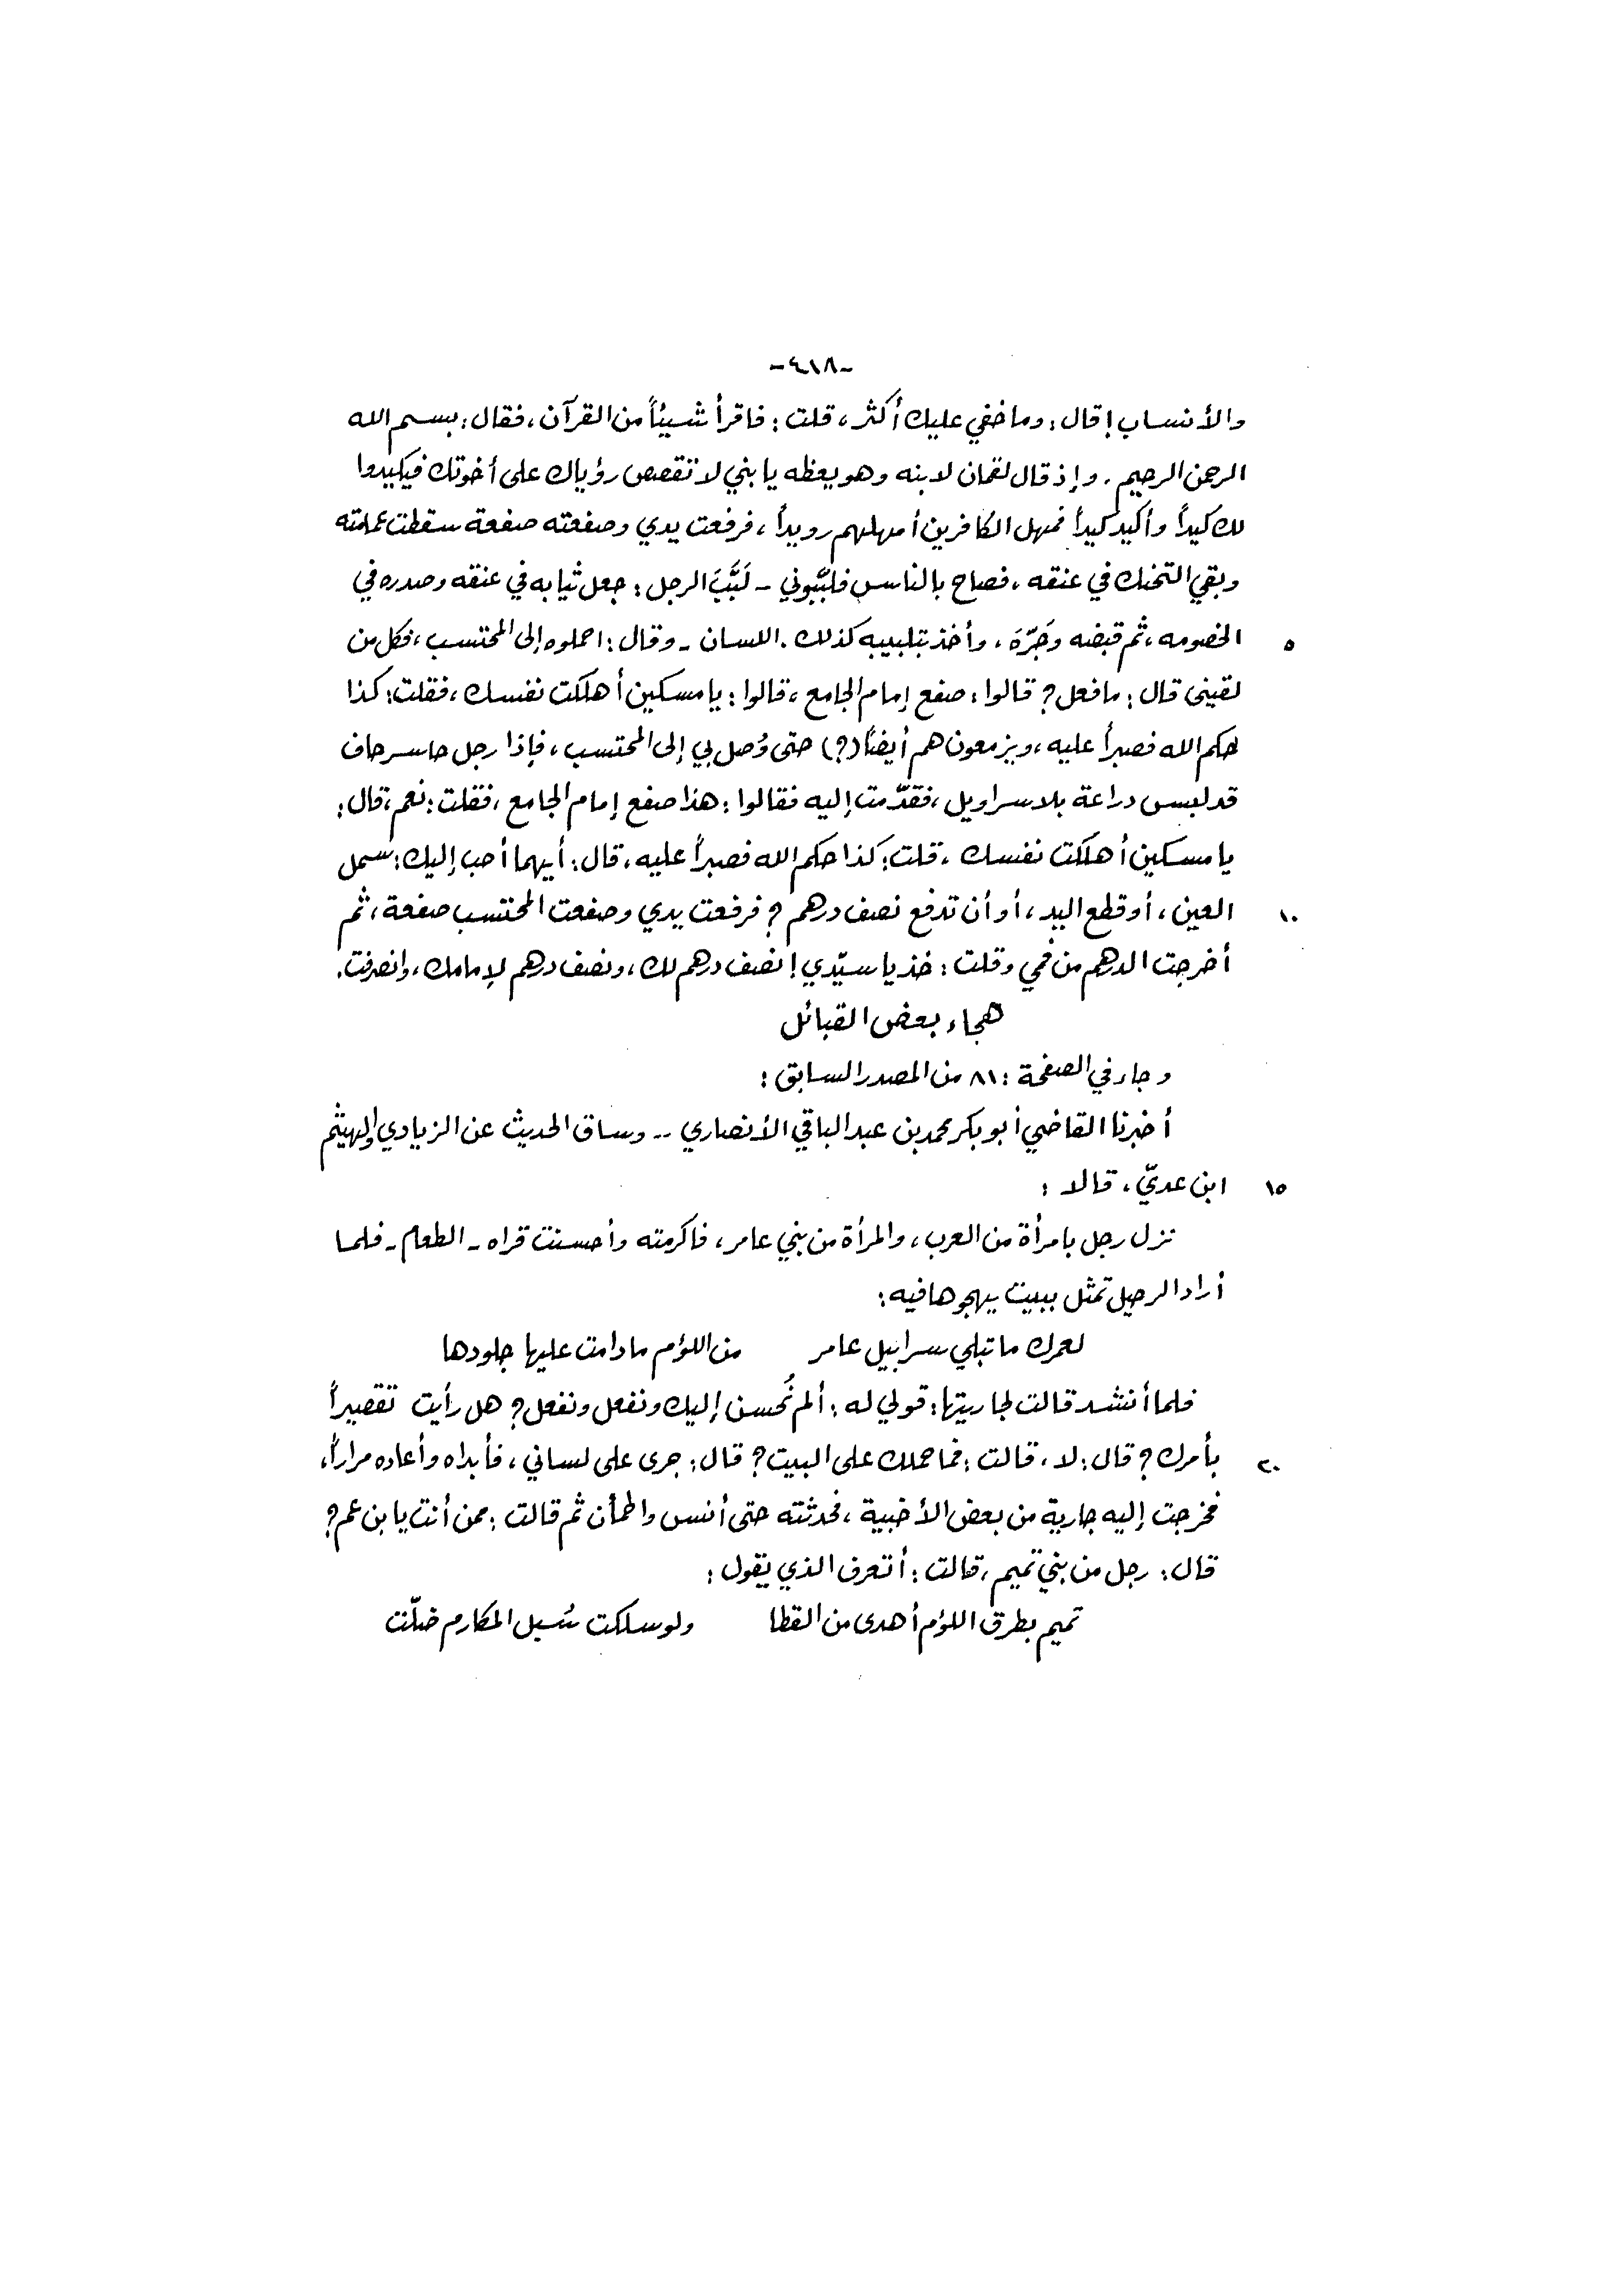 -٤١٨-
والأنساب! قال: وما خفي عليك أكثر، قلت: فاقرأ شيئاً من القرآن، فقال: بسم الله
الرحمن الرحيم. وإذ قال لقمان لابنه وهو يعظه يا بني لا تقصص رؤياك على أخوتك فيكيدوا
لك كيداً وأكيد كيداً فمهل الكافرين أمهلهم رويداً، فرفعت يدي وصفعته صفعة سقطت عمامته
وبقي التحنك في عنقه، فصاح بالناس فلبَّبوني - لَبَّبَ الرجل: جعل ثيابه في عنقه وصدره في
٥ الخصومه، ثم قبضه وَجَرّهَ، وأخذ بتلبيبه كذلك. اللسان - وقال: احملوه إلى المحتسب، فكل من
لقيني قال: ما فعل؟ قالوا: صفع إمام الجامع، قالوا: يا مسكين أهلكت نفسك، فقلت: كذا
حكم الله فصبراً عليه، ويزمعون هم أيضاً (؟) حتى وُصل بي إلى المحتسب، فإذا رجل حاسر حاف
قد لبس دراعة بلا سراويل، فقدّمت إليه فقالوا: هذا صفع إمام الجامع، فقلت: نعم، قال:
يا مسكين أهلكت نفسك، قلت: كذا حكم الله فصبراً عليه، قال: أيهما أحب إليك: سمل
١٠ العين، أو قطع اليد، أو أن تدفع نصف درهم؟ فرفعت يدي وصفعت المحتسب صفعة، ثم
أخرجت الدرهم من فمي وقلت: خذ يا سيّدي! نصف درهم لك، ونصف درهم لإمامك، وانصرفت.
هجاء بعض القبائل
وجاء في الصفحة: ٨١ من المصدر السابق:
أخبرنا القاضي أبو بكر محمد بن عبد الباقي الأنصاري .. وساق الحديث عن الزيادي والهيثم
١٥ ابن عديّ، قالا:
نزل رجل بامرأة من العرب، والمرأة من بني عامر، فاكرمته وأحسنت قراه - الطعام - فلما
أراد الرحيل تمثل ببيت يهجوها فيه:
لعمرك ما تبلي سرابيل عامر من اللؤم ما دامت عليها جلودها
فلما أنشد قالت لجاريتها: قولي له: ألم نُحسن إليك ونفعل ونفعل؟ هل رأيت تقصيراً
٢٠ بأمرك؟ قال: لا، قالت: فما حملك على البيت؟ قال: جرى على لساني، فأبداه وأعاده مراراً،
فخرجت إليه جارية من بعض الأخبية، فحدثته حتى أنس واطمأن ثم قالت: ممن أنت يا بن عم؟
قال: رجل من بني تميم، قالت: أتعرف الذي يقول:
تميم بطرق اللؤم أهدى من القطا ولو سلكت سُبل المكارم ضلّت